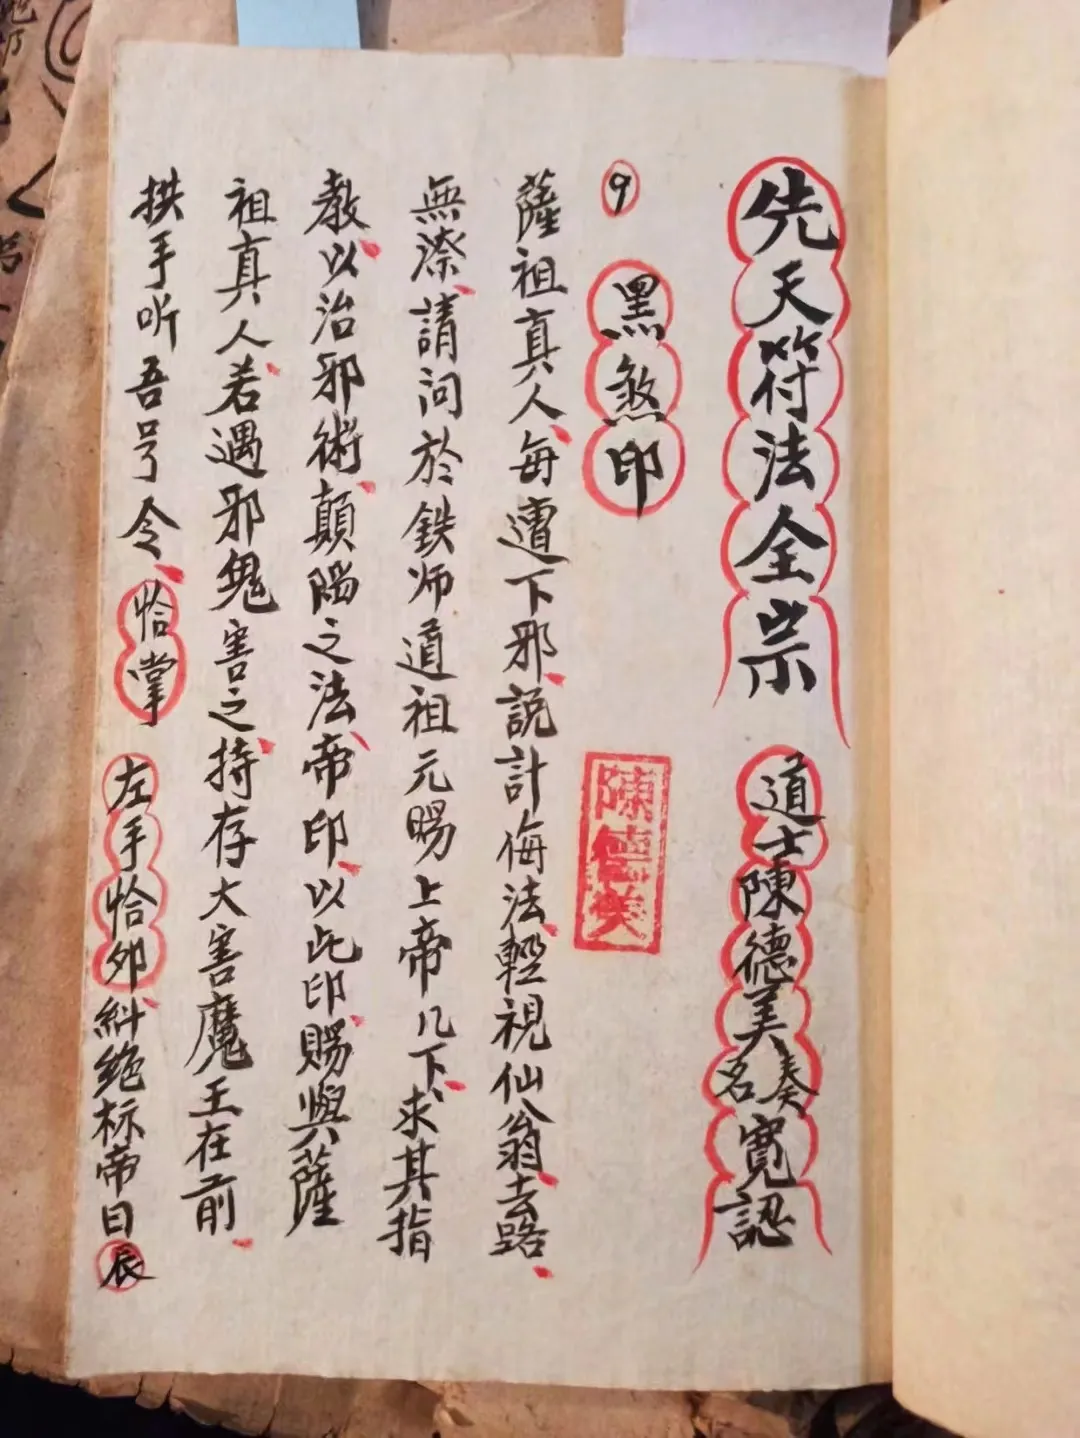 先天符法全宗 道士陳德美奏名寬認
9 黑煞印
陳德美
薩祖真人每遭下邪說計侮法輕視仙翁去路
無漈請问於鉄师道祖元赐上帝几下求其指
教以治邪術顛陽之法帝印以此印賜與薩
祖真人若遇邪鬼害之持存大害魔王在前
拱手听吾号令恰掌 左手恰夘糾絕标帝日辰